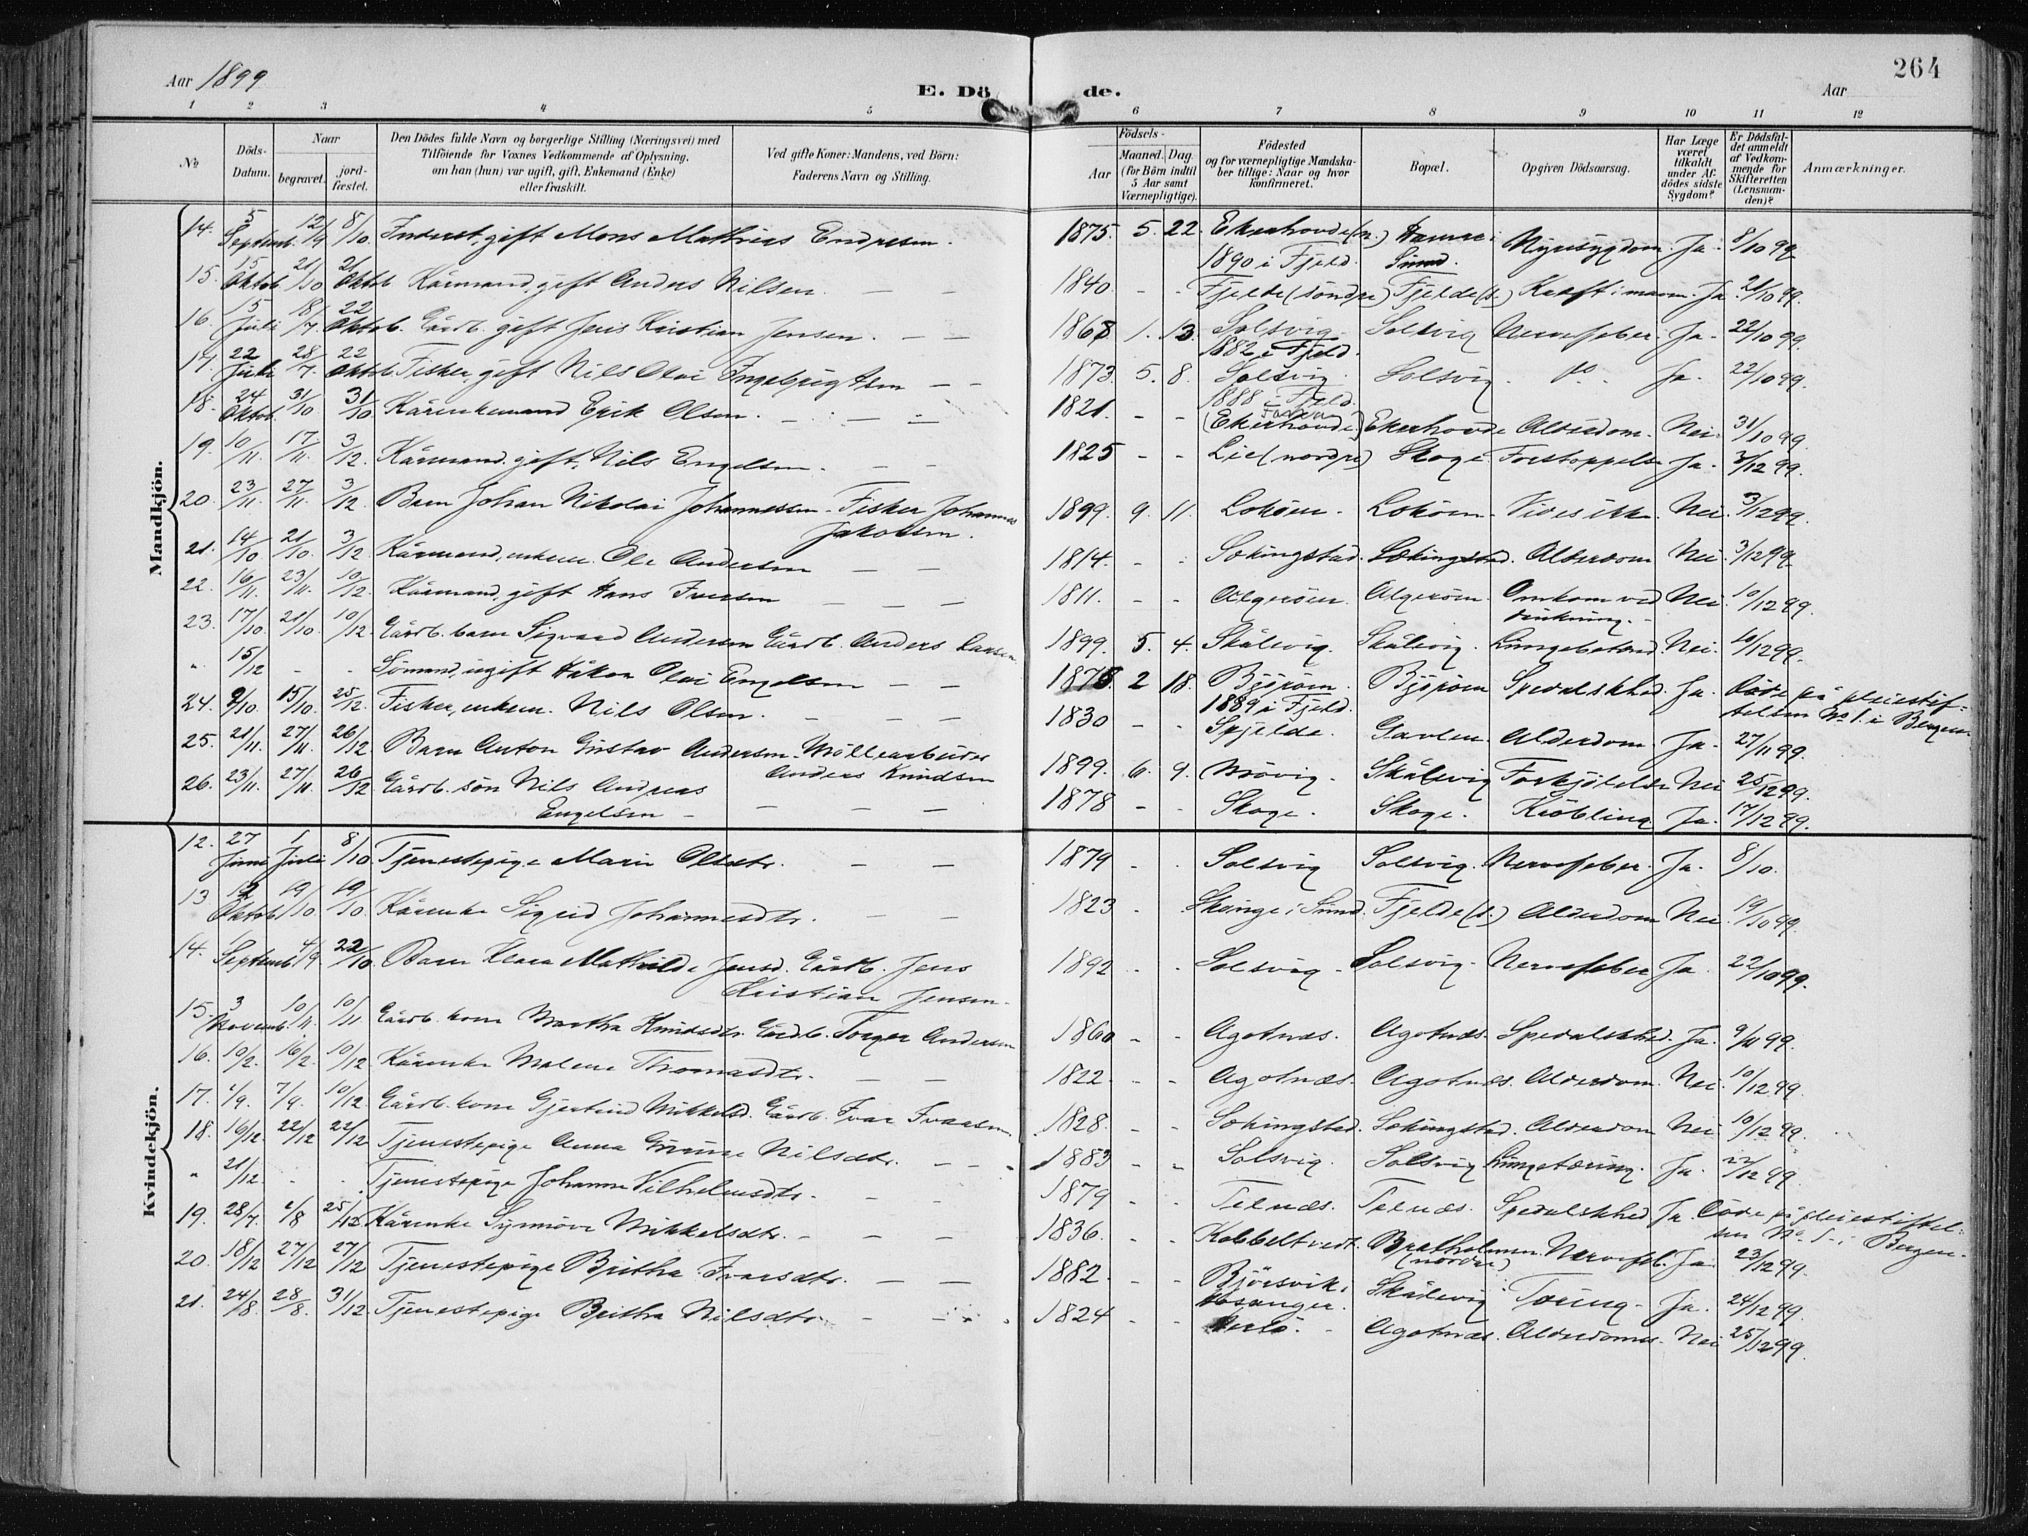 264
Aar 1899
E. Dö
de.
Aar
1 2 3 4 5 6 7 8 9 10 11 12
No
Döds-
Datum.
Naar
begravet.
jord-
fæstet.
Den Dödes fulde Navn og borgerlige Stilling (Næringsvei) med
Tilföiende for Voxnes Vedkommende af Oplysning,
om han (hun) var ugift, gift, Enkemand (Enke)
eller fraskilt.
Ved gifte Koner: Mandens, ved Börn:
Faderens Navn og Stilling.
Födsels-
Aar
Maaned. Dag.
(for Börn indtil
5 Aar samt
Værnepligtige).
Födested
og for værnepligtige Mandska-
ber tillige: Naar og hvor
konfirmeret.
Bopæl.
Opgiven Dödsaarsag.
Har Læge
været
tilkaldt
under Af-
dödes sidste
Sygdom?
Er Dödsfal-
det anmeldt
af Vedkom-
mende for
Skifteretten
(Lensman-
den)?
Anmærkninger.
Mandkjön.
14. 5 Septemb. 12/9 8/10. gift Mons Mathias Endresen. 1875. 5. 22. Ekerhovde (n.) Nyresygdom Ja. 8/10 99
1890 i Fjeld. Sund.
15. 15 Oktob 21/10 21 Oktb Kårmand, gift Anders Nilsen. — — 1840. - - Fjelde (söndre) Fjelde (s.) Kræft i maven. Ja 21/10 99.
16. 15 Juli 18/7. 22 Oktob. Gårdb. gift Jens Kristian Jensen. — — 1868 1. 13. Solsvig Solsvig Nervefeber. Ja. 22/10 99.
1882 i Fjeld.
17. 22 Juli 28/7. 22 Oktob Fisker, gift Nils Olai Ingebrigtsen — — 1873. 5. 8. Solsvig. Solsvig. Do. Ja. 22/10 99.
1888 i Fjeld.
18. 24 Oktob. 31/10 31/10 Kårenkemand Erik Olsen. — — 1821. - - (Ekerhovde) Ekerhovde Alderdom. Nei. 31/10 99.
19. 10/11. 17/11. 3/12. Kårmand, gift, Nils Engelsen. — — 1825 - - Lie (nordre) Skoge Forstoppelse Ja. 3/12 99.
20. 23/11. 27/11. 3/12. Barn Johan Nikolai Johannessen. Fisker Johannes 1899. 9. 11. Loköen. Loköen. Vides ikke. Nei 3/12 99.
Jakobsen.
21. 14/10 21/10. 3/12 Kårmand, enkem. Ole Andersen — — 1814. - - Sekingstad. Sekingstad. Alderdom Nei. 3/12 99
22. 16/11. 23/11. 10/12. Kårmand, gift Hans Iversen — — 1811. - - Algeröen. Algeröen. Omkom ved Nei. 10/12 99.
drukning.
23. 17/10. 21/10. 10/12. Gårdb. barn Sigvard Andersen Gårdb. Anders Larsen. 1899. 5. 4. Skålevig. Skålevig. Lungebetænd. Nei. 10/12 99.
" 15/12 - - Sömand, ugift Håkon Olai Engelsen — — 1875 2 18. Björöen. Björöen Spedalskhed. Ja. Döde på pleiestif-
1889 i Fjeld. telsen No 1. i Bergen
24. 9/10. 15/10. 25/12. Fisker, enkem. Nils Olsen. — — 1830 - - Spjelde. Gavlen. Alderdom. Ja. 27/11 99.
25. 21/11. 27/11. 26/12 Barn Anton Gustav Andersen. Möllearbeider 1899. 6. 9. Morvig. Skålevig Forkjölelse Nei 25/12 99.
Anders Knudsen
26. 23/11. 27/11. 26/12 Gårdb. sön Nils Andreas 1878 - - Skoge. Skoge. Kröbling Ja. 17/12 99.
Engelsen — — —
Kvindekjön.
12. 27 Juni 1 Juli 8/10. Tjenestepige Marie Olsdtr. — — 1879 - - Solsvig Solsvig. Nervefeber. Ja. 8/10.
13 12 Oktob 19/10. 19/10. Kårenke Sigrid Johannesdtr. — — 1823 - Skinge i Sund. Fjelde (s.) Alderdom Nei. 19/10 99.
14. 1 Septemb. 4/9. 22/10. Barn Klara Mathilde Jensd. Gårdb. Jens 1892 - - Solsvig. Solsvig. Nervefeber Ja. 22/10 99.
Kristian Jensen.
15. 3 Novemb. 10/11. 10/11 Gårdb. kone Martha Knudsdtr. Gårdb. Torger Andersen 1860 - - Agotnæs. Agotnæs. Spedalskhed. Ja. 9/11 99.
16. 10/2. 16/2. 10/12 Kårenke Malene Thomasdtr. — — 1822. - - Agotnæs. Agotnæs. Alderdom. Nei. 10/12 99.
17. 1/9. 7/9. 10/12. Gårdb. kone Gjertrud Mikkelsd. Gårdb. Ivar Ivarsen 1828. - - Sekingstad. Sekingstad. Alderdom Nei 10/12 99.
18. 16/12. 22/12 22/12 Tjenestepige Anna Nilsdtr. — — 1883 - - Solsvig. Solsvig Lungetæring. Ja. 22/12 99.
" 21/12. - - Tjenestepige Johanna Vilhelmsdtr. — — 1879 - - Telnæs. Telnæs. Spedalskhed Ja. Döde på pleiestiftel-
sen No 1. i Bergen.
19. 28/7. 2/8 25/12. Kårenke Synnöve Mikkelsdtr. — — 1836. - - Kobbeltvedt. Bratholmen Nervefeb. Ja. 23/12 99.
(nordre)
20. 18/12 27/12 27/12 Tjenestepige Britha Ivarsdtr. — — 1882. - - Björsvik, Skålevig Tæring. Ja. 24/12 99.
Hosanger.
21. 24/8. 28/8. 31/12 Tjenestepige Britha Nilsdtr. — — 1824 - - Herlö. Agotnæs. Alderdom Nei 25/12 99.